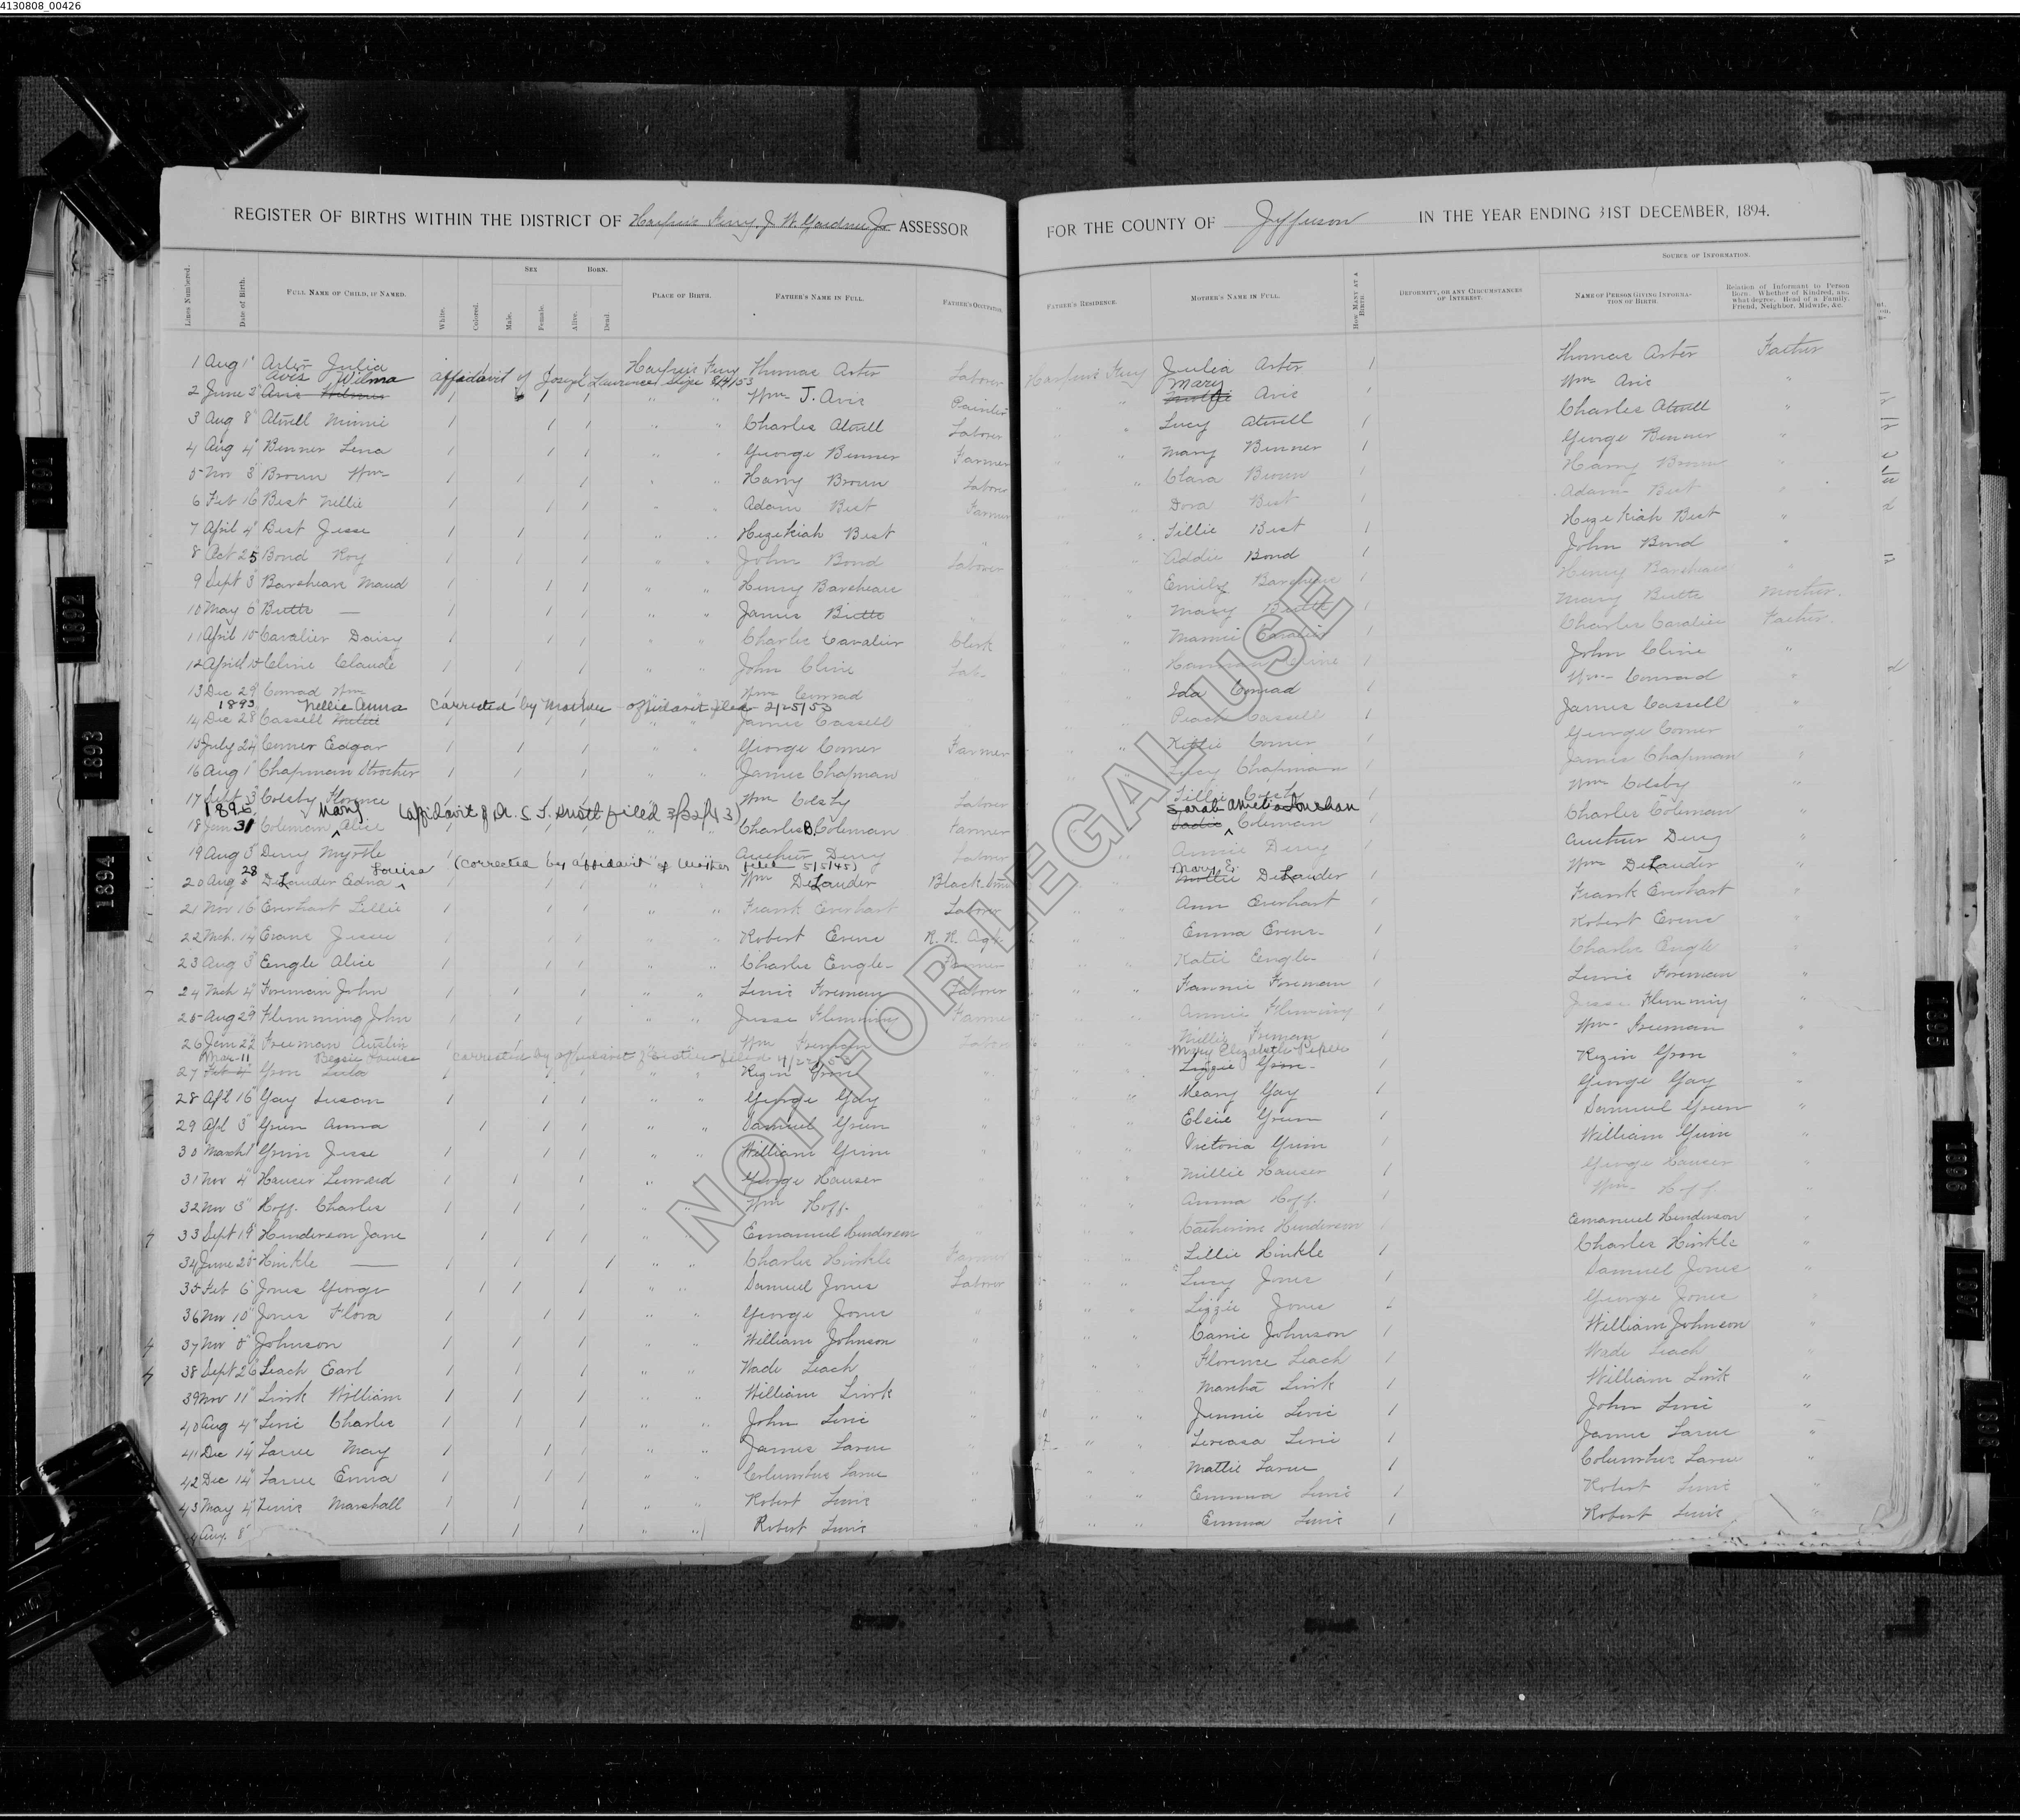 4130808_00426
REGISTER OF BIRTHS WITHIN THE DISTRICT OF Harper's Ferry. J. W. Gardner Jr. ASSESSOR FOR THE COUNTY OF Jefferson IN THE YEAR ENDING 31ST DECEMBER, 1894.
Lines Numbered. Date of Birth. FULL NAME OF CHILD, IF NAMED. White. Colored. SEX Male. Female. BORN. Alive. Dead. PLACE OF BIRTH. FATHER'S NAME IN FULL. FATHER'S OCCUPATION. FATHER'S RESIDENCE. MOTHER'S NAME IN FULL. HOW MANY AT A BIRTH DEFORMITY, OR ANY CIRCUMSTANCES OF INTEREST. SOURCE OF INFORMATION. NAME OF PERSON GIVING INFORMATION OF BIRTH Relation of Informant to Person Born. Whether of Kindred, and what degree. Head of a Family, Friend, Neighbor, Midwife, &c.
1 Aug 1" Arter Julia Harper's Ferry Thomas Arter Laborer Harper's Ferry Julia Arter 1 Thomas Arter Father
Avis Wilma affidavit of Joseph Laurence 8/4/53 Mary
2 June 2" Avis Wilmer 1 1 1 " " Wm. J. Avis Painter " " Avis 1 Wm. Avis "
3 Aug 8" Atwell Minnie 1 1 1 " " Charles Atwell Laborer " Lucy Atwell 1 Charles Atwell "
4 Aug 4" Benner Lena 1 1 1 " " George Benner Farmer " " Mary Benner 1 George Benner "
5 Nov 3" Brown Wm 1 1 1 " " Harry Brown Laborer " Clara Brown 1 Harry Brown "
6 Feb 16" Best Nellie 1 1 1 " " Adam Best Farmer Dora Best 1 Adam Best "
7 April 4" Best Jesse 1 1 1 " " Hezekiah Best " " Tillie Best 1 Hezekiah Best "
8 Oct 25 Bond Roy 1 1 1 " " John Bond Laborer Addie Bond 1 John Bond "
9 Sept 3" Barsheare Maud 1 1 1 " " Henry Barsheare " Emily Barsheare 1 Henry Barsheare "
10 May 6" Butts — 1 1 1 " " James Butts " " Mary Butts 1 Mary Butts Mother.
11 April 15 Cavalier Daisy 1 1 1 " " Charles Cavalier Clerk Mamie Cavalier 1 Charles Cavalier Father.
12 April Cline Claude 1 1 1 " " John Cline Lab- Cline 1 John Cline "
13 Dec 29" Conrad Wm 1 1 1 " " Wm Conrad Ida Conrad 1 Wm- Conrad "
1893 Nellie Anna Corrected by Mother affidavit filed 2/25/53
14 Dec 28" Cassell 1 1 1 James Cassell Cassell 1 James Cassell "
15 July 24" Comer Edgar 1 1 1 " " George Comer Farmer " Kittie Comer 1 George Comer "
16 Aug 1" Chapman Strother 1 1 1 " " James Chapman " " Lucy Chapman 1 James Chapman "
17 Sept 3" Colesby Florence 1 1 1 Wm Colesby Laborer Tillie Colesby Wm Colesby "
1896 Mary (affidavit of Dr. S. T. Knott filed 3/22/43) Sarah Amelia
18 Jan 31 Coleman Alice 1 1 1 " Charles B. Coleman Farmer Sadie Coleman 1 Charles Coleman "
19 Aug 5" Derry Myrtle 1 Derry Laborer Annie Derry 1 Derry "
28 Louise (Corrected by affidavit of Mother filed 5/5/45) Mary E.
20 Aug 5" DeLauder Edna Wm DeLauder Black-Smi Mollie DeLauder 1 Wm DeLauder "
21 Nov 16" Everhart Lillie 1 1 1 " " Frank Everhart Laborer " " Ann Everhart 1 Frank Everhart "
22 Mch. 14" Evans Jessie 1 1 1 " " Robert Evans R. R. Agt. " " Emma Evans 1 Robert Evans "
23 Aug 3" Engle Alice 1 1 1 " " Charles Engle Farmer " " Katie Engle 1 Charles Engle "
24 Mch 4" Foreman John 1 1 1 " " Lewis Foreman Laborer " " Fannie Foreman 1 Lewis Foreman "
25 Aug 29" Flemming John 1 1 1 " " Jesse Flemming Farmer Annie Fleming 1 Jesse Flemming "
26 Jan 22" Freeman Austin 1 1 1 Wm Freeman Laborer Millie Freeman Wm- Freeman "
Mar-11 Bessie Louise corrected by affidavit of sister filed Mary Elizabeth Piper
27 Feb Lula 1 1 1 Rezin " Lizzie 1 Rezin "
28 Apl 16" Gay Susan 1 1 1 " " George Gay " " " Meany Gay 1 George Gay "
29 Apl 3" Green Anna 1 1 1 " " Samuel Green " Elsie Green 1 Samuel Green "
30 March 1" Grim Jesse 1 1 1 " " William Grim " Victoria Grim 1 William Grim "
31 Nov 4" Hauser Leonard 1 1 1 " George Hauser " Millie Hauser 1 George Hauser "
32 Nov 3" Hoff. Charles 1 1 1 " " Wm Hoff. " Anna Hoff. 1 Wm- Hoff "
33 Sept 19" Henderson Jane 1 1 1 " " Emanuel Henderson " " Catherine Henderson 1 Emanuel Henderson "
34 June 20" Hinkle — 1 1 1 " " Charles Hinkle Farmer " " Lillie Hinkle 1 Charles Hinkle "
35 Feb 6" Jones George 1 1 1 " " Samuel Jones Laborer " " Lucy Jones 1 Samuel Jones "
36 Nov 10" Jones Flora 1 1 1 " " George Jones " " Lizzie Jones 1 George Jones "
37 Nov 5" Johnson 1 1 1 " " William Johnson " " Carrie Johnson 1 William Johnson "
38 Sept 26 Leach Earl 1 1 1 " " Wade Leach " " Florence Leach 1 Wade Leach "
39 Nov 11" Link William 1 1 1 " " William Link " " Martha Link 1 William Link "
40 Aug 4" Charles 1 1 1 " " John " " " Jennie 1 John "
41 Dec 14" Larue May 1 1 1 " " James Larue " " 1 James Larue "
42 Dec 14" Larue Emma 1 1 1 " " Columbus Larue " " " Mattie Larue 1 Columbus Larue "
43 May 4" Lewis Marshall 1 1 1 " " Robert Lewis " " Emma Lewis 1 Robert Lewis "
Aug. 8" 1 1 1 " " Robert Lewis " " " Emma Lewis 1 Robert Lewis "
NOT FOR LEGAL USE
1891
1892
1893
1894
1895
1896
1897
1898